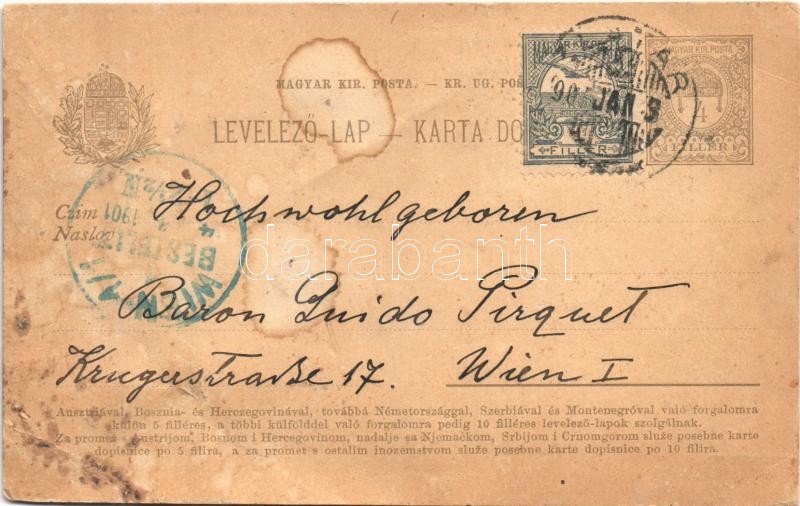 MAGYAR KIR. POSTA. — KR. UG. POŠ
LEVELEZŐ-LAP — KARTA DO
MAGYAR KIR. POSTA
FILLER
MAGYAR KIR. POSTA
4
FILLÉR
JAN 5
WIEN 1/1
BESTELLT
1901
Czim
Naslov
Hochwohlgeboren
Baron Guido Pirquet
Krugerstraße 17. Wien I
darabanth
Ausztriával, Bosznia- és Herczegovinával, továbbá Németországgal, Szerbiával és Montenegróval való forgalomra
külön 5 filléres, a többi külfölddel való forgalomra pedig 10 filléres levelező-lapok szolgálnak.
Za promet s Austrijom, Bosnom i Hercegovinom, nadalje sa Njemačkom, Srbijom i Crnomgorom služe posebne karte
dopisnice po 5 filira, a za promet s ostalim inozemstvom služe posebne karte dopisnice po 10 filira.